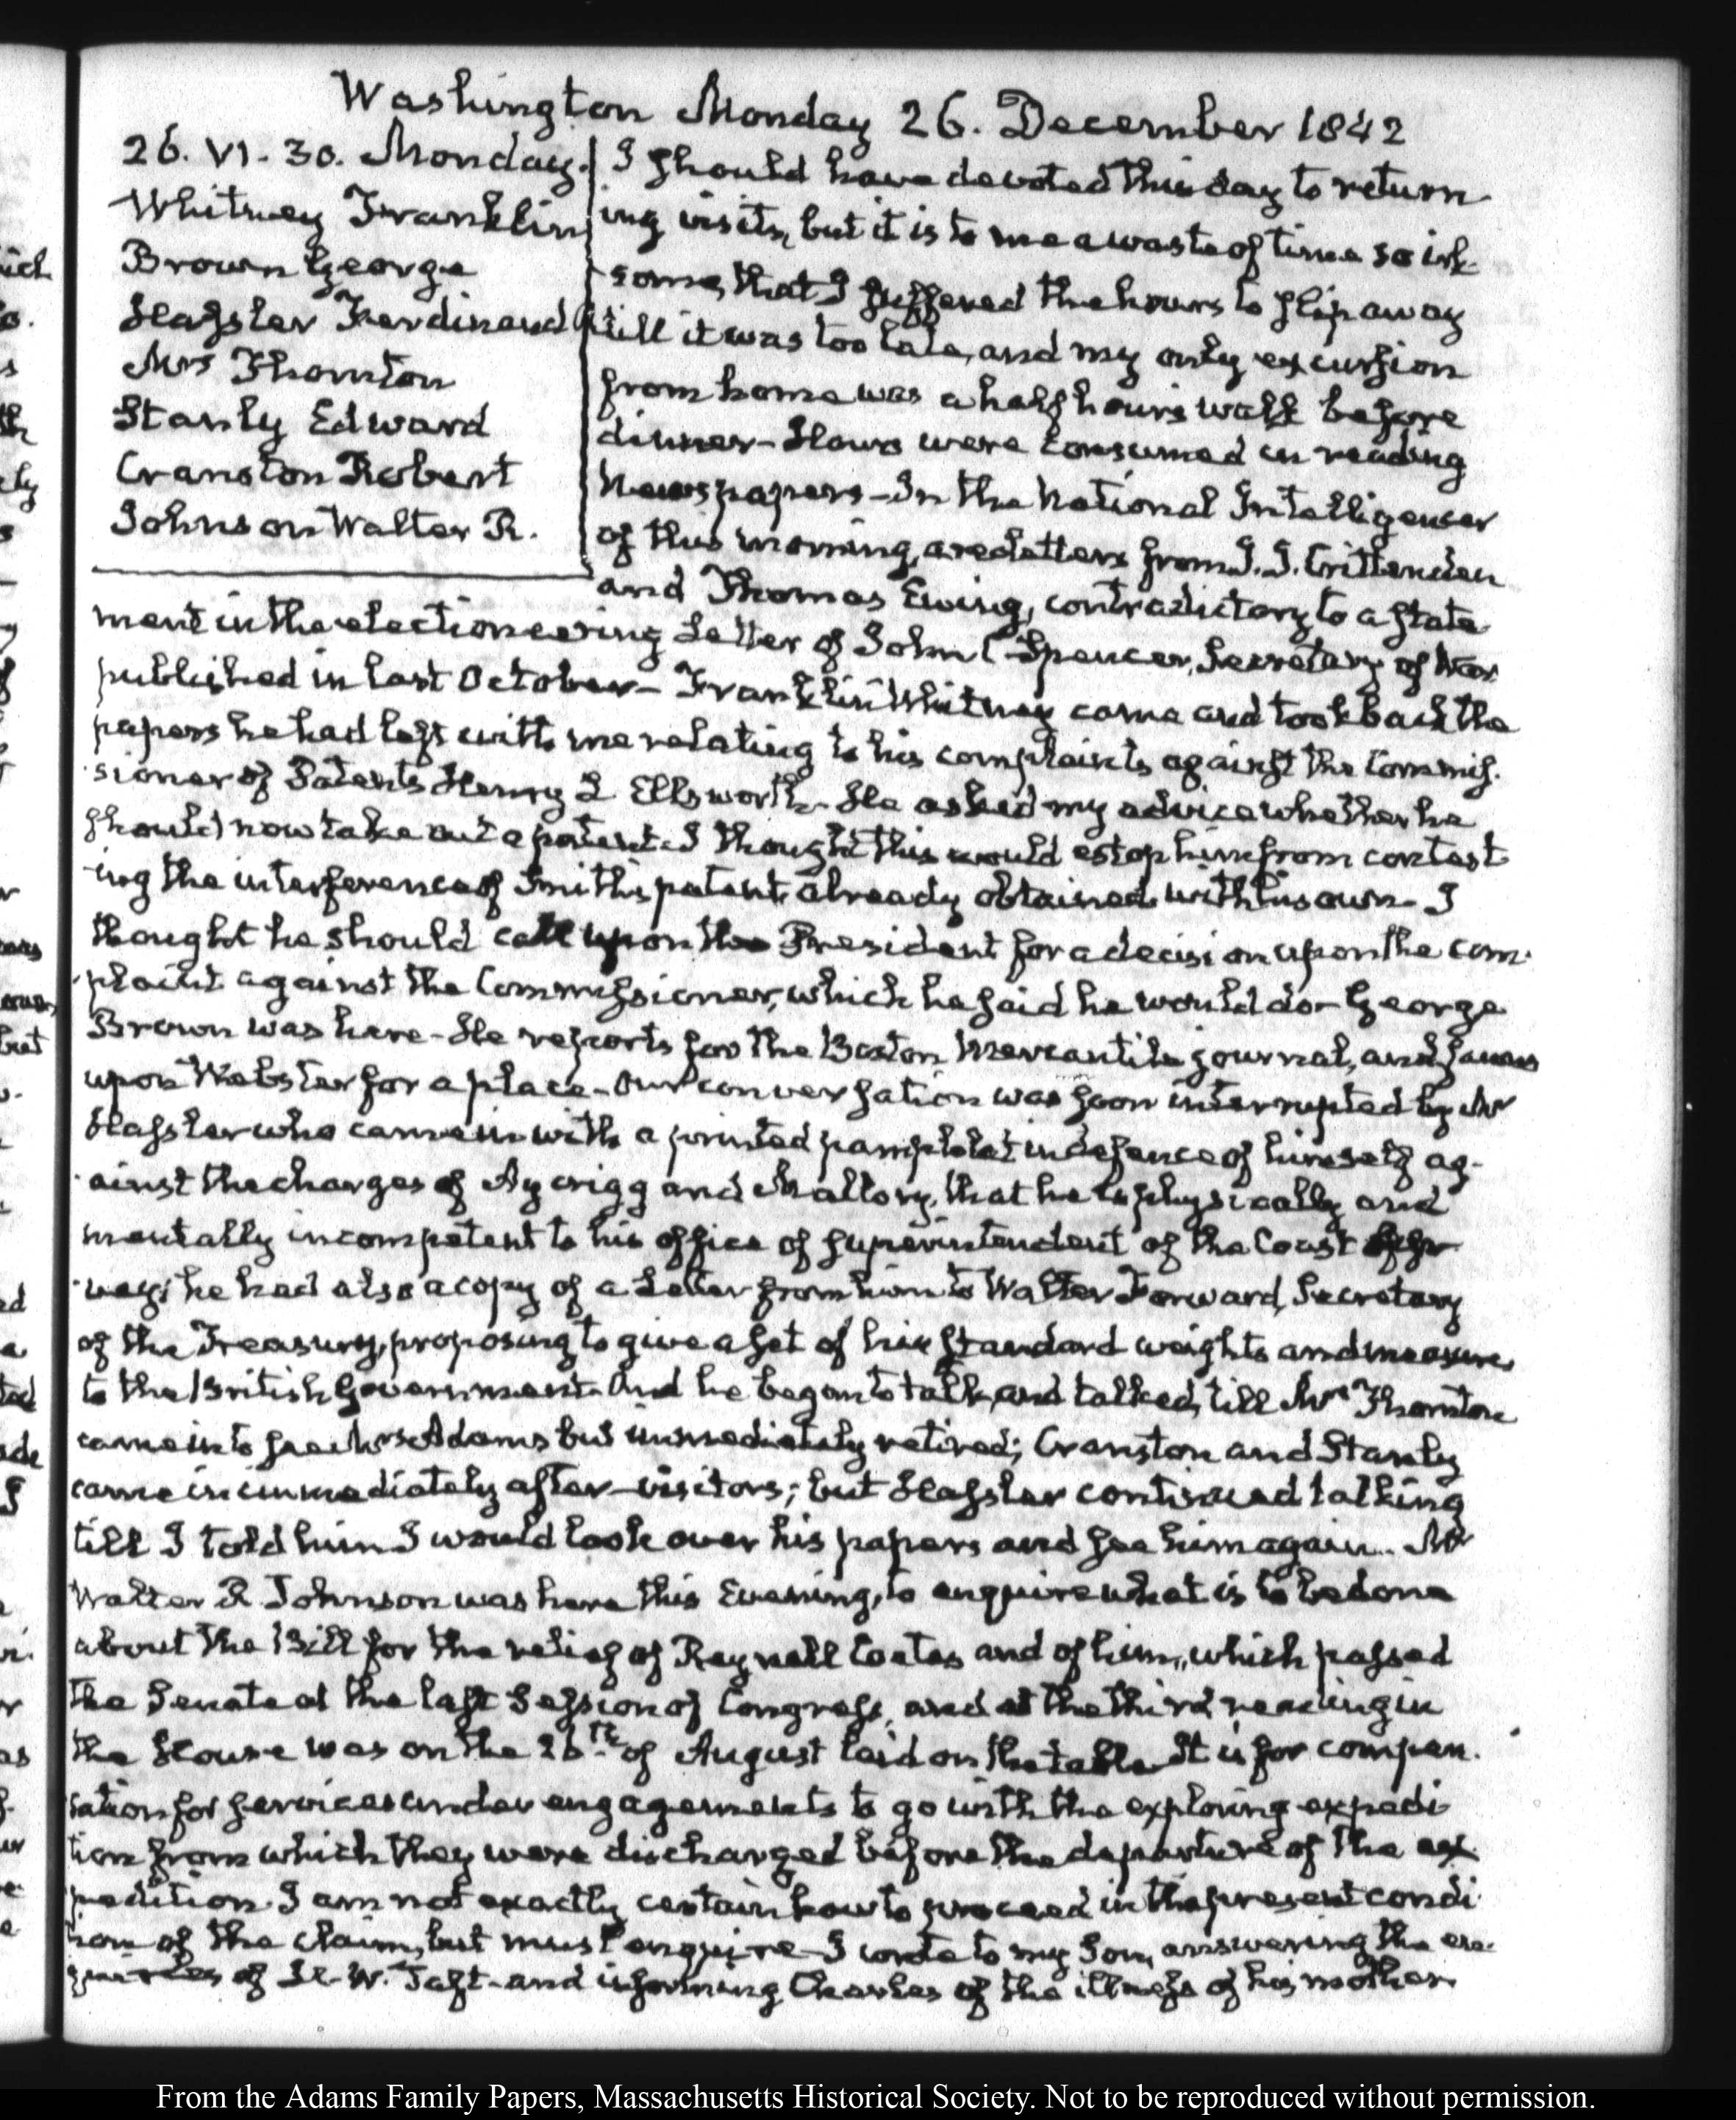 Washington Monday 26. December 1842
26. VI. 30. Monday.
Whitney Franklin
Brown George
Hassler Ferdinand
Mrs Thornton
Stanly Edward
Cranston Robert
Johnson Walter R.
I should have devoted this day to return-
ing visits, but it is to me a waste of time so irk-
some, that I suffered the hours to slip away
till it was too late, and my only excursion
from home was a half hour's walk before
dinner - Hours were consumed in reading
Newspapers - In the National Intelligencer
of this morning, are Letters from J. J. Crittenden
and Thomas Ewing, contradictory to a state
ment in the electioneering Letter of John C Spencer, Secretary of War
published in last October - Franklin Whitney came and took back the
papers he had left with me relating to his complaints against the Commis-
sioner of Patents Henry L Ellsworth - He asked my advice whether he
should now take out a patent. I thought this would estop him from contest-
ing the interference of Smith's patent already obtained with his own - I
thought he should call upon the President for a decision upon the com-
plaint against the Commissioner, which he said he would do - George
Brown was here - He reports for the Boston Mercantile journal, and fawns
upon Webster for a place - Our conversation was soon interrupted by Mr
Hassler who came in with a printed pamphlet in defence of himself ag-
ainst the charges of Aycrigg and Mallory, that he is physically and
mentally incompetent to his office of Superintendent of the Coast Sur-
vey; he had also a copy of a Letter from him to Walter Forward, Secretary
of the Treasury, proposing to give a set of his standard weights and measures
to the British Government. And he began to talk, and talked, till Mrs Thornton
came in to see Mrs Adams but immediately retired; Cranston and Stanly
came in immediately after - visitors; but Hassler continued talking
till I told him I would look over his papers and see him again. Mr
Walter R Johnson was here this Evening, to enquire what is to be done
about the Bill for the relief of Reynell Coates and of him, which passed
the Senate at the last Session of Congress, and at the third reading in
the House was on the 26th of August laid on the table. It is for compen-
sation for services under engagements to go with the exploring expedi
tion from which they were discharged before the departure of the ex-
pedition. I am not exactly certain how to proceed in the present condi
tion of the claim, but must enquire - I wrote to my Son, answering the en-
quiries of H. W. Taft - and informing Charles of the illness of his mother.
From the Adams Family Papers, Massachusetts Historical Society. Not to be reproduced without permission.